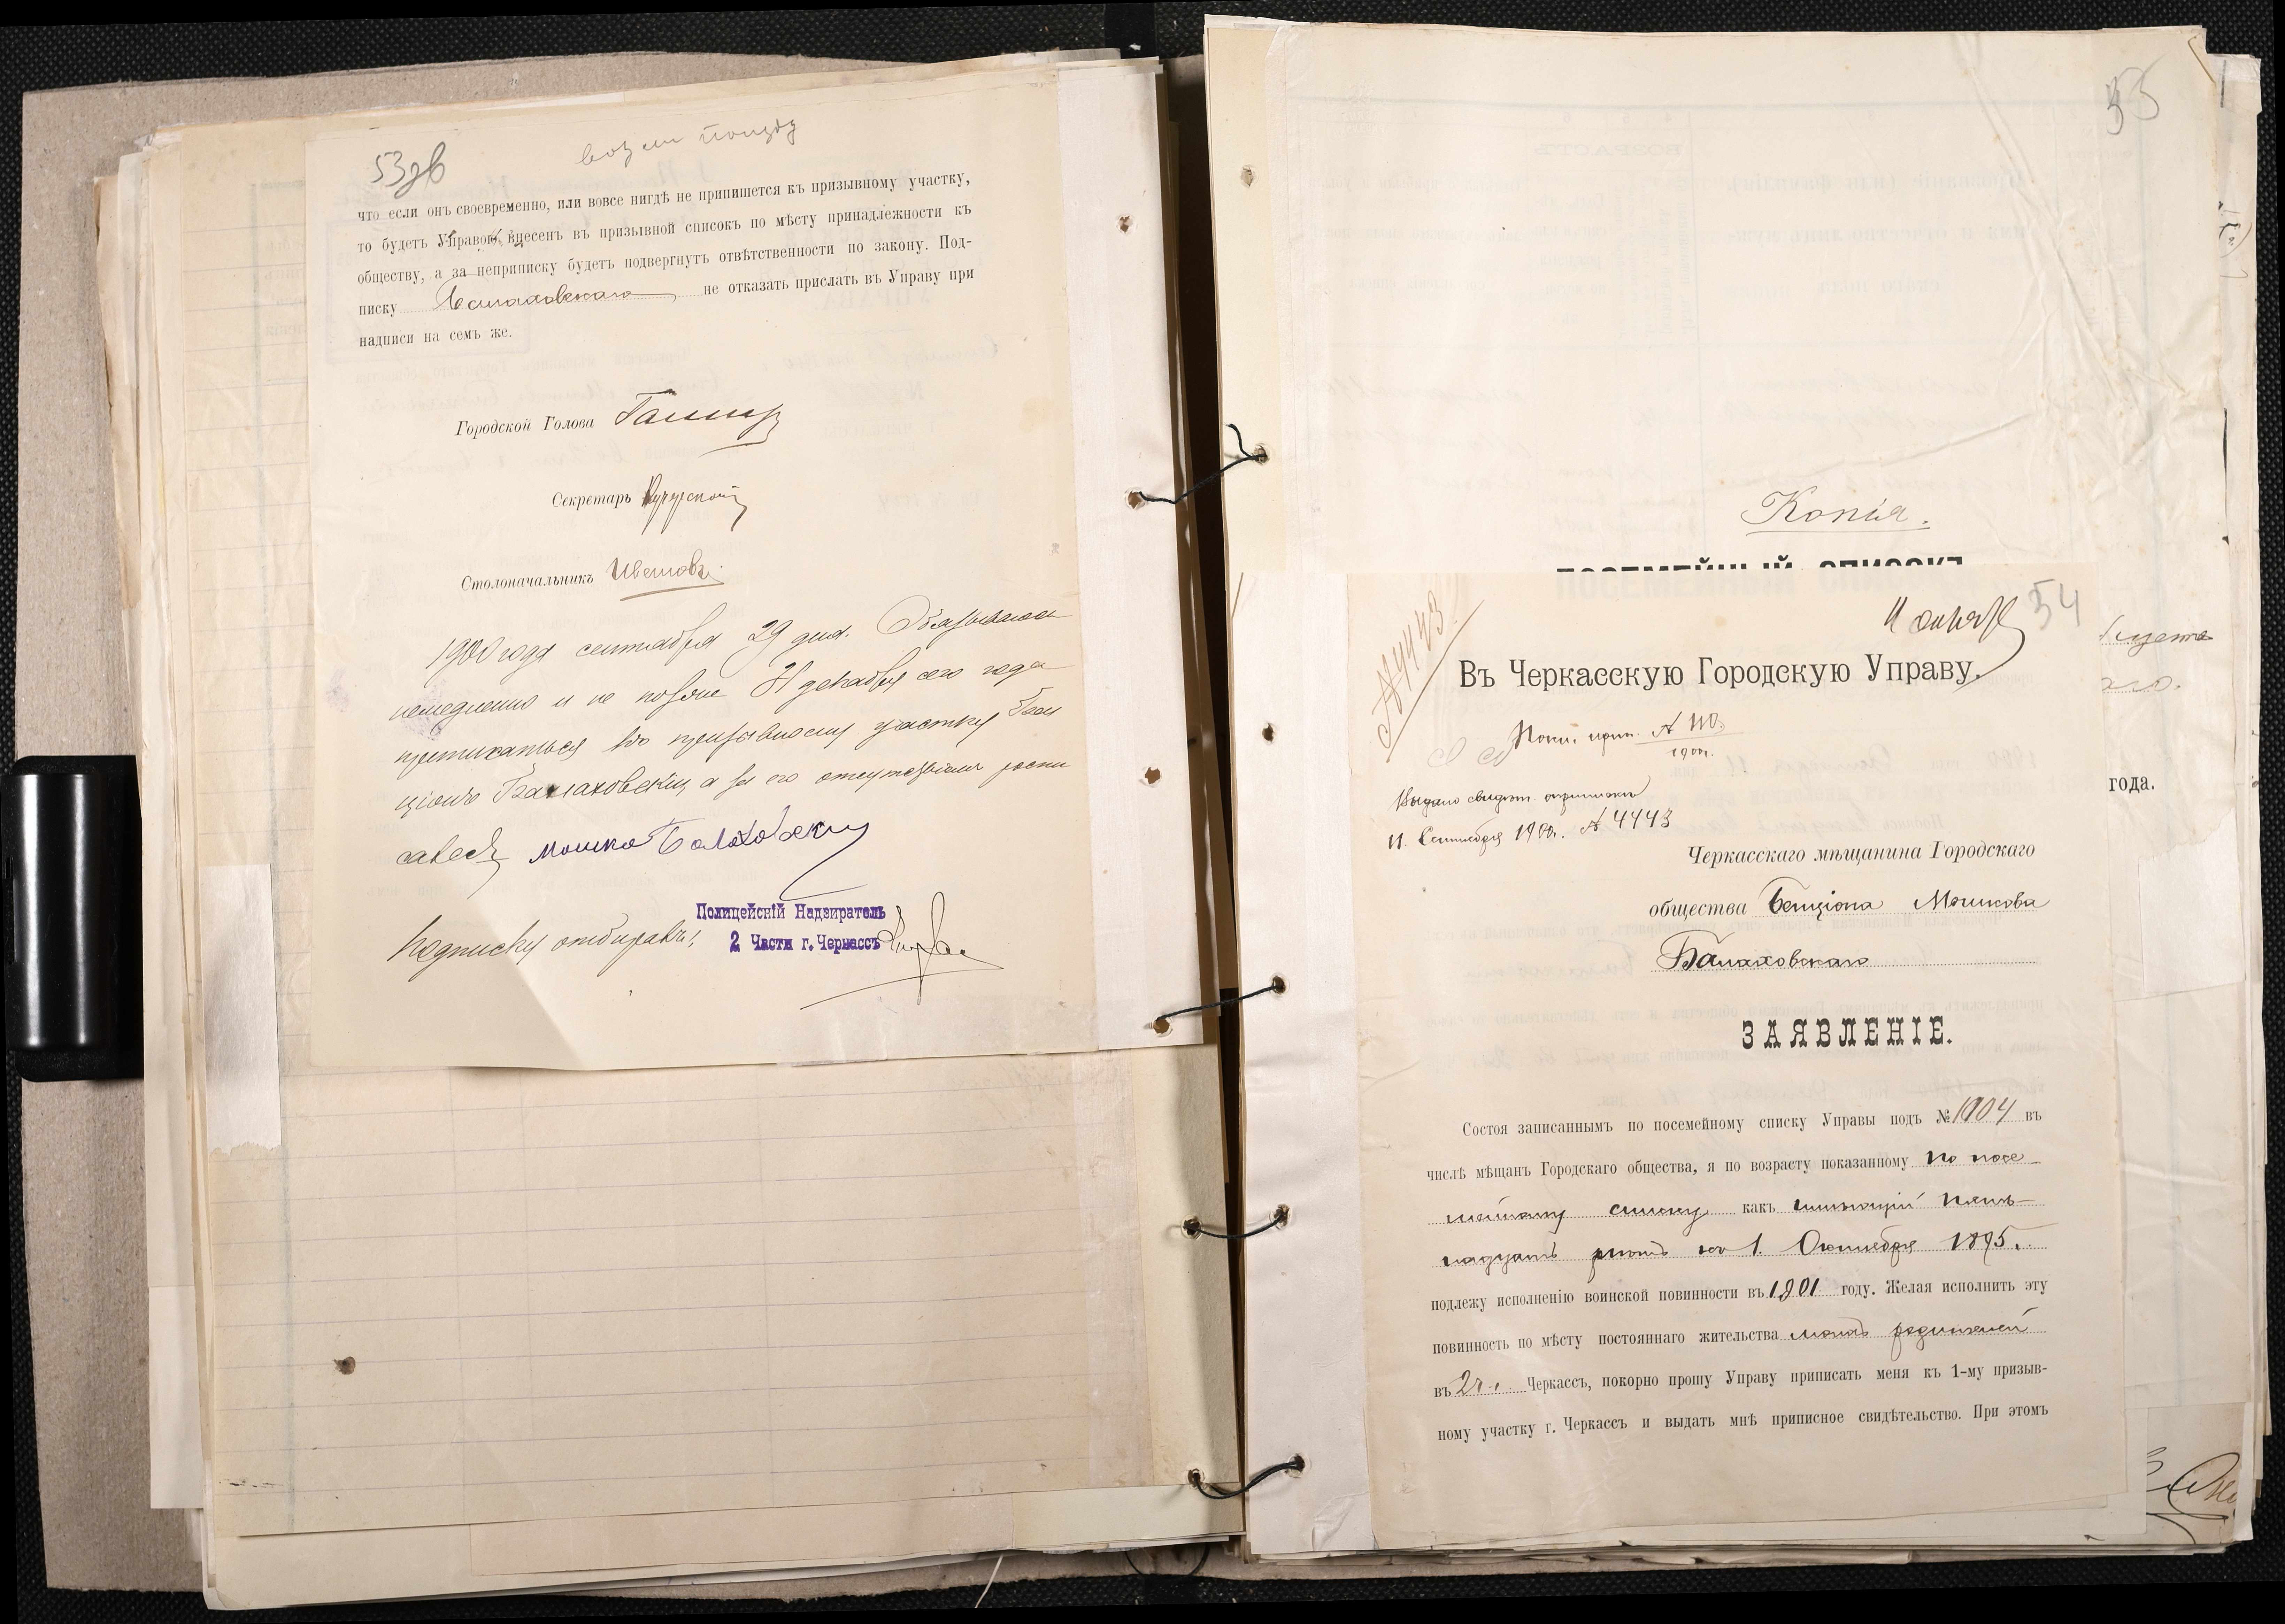 53 зв
что если онъ своевременно, или вовсе нигдѣ не припишется къ призывному участку,
то будетъ Управою внесенъ въ призывной списокъ по мѣсту принадлежности къ
обществу, а за неприписку будетъ подвергнутъ отвѣтственности по закону. Под-
писку Балаховскаго не отказать прислать въ Управу при
надписи на семъ же.
Городской Голова
Секретарь
Столоначальникъ
1900 года сентября 29 дня. Обязываюсь
немедленно и не позже 31 декабря сего года
приписаться къ призывному участку Бен
ціонъ Балаховскій, а за его отсутствіемъ роспи
сался Мошко Балаховскій
Подписку отбиралъ:
Полицейскій Надзиратель
2 Части г. Черкассъ
55
Копія.
ПОСЕМЕЙНЫЙ СПИСОКЪ
54
№ 4443
Въ Черкасскую Городскую Управу.
1900 г.
Выдано свидѣт. о припискѣ
11 Сентября 1900 г. № 4443
года.
Черкасскаго мѣщанина Городскаго
общества Бенціона Мошкова
Балаховскаго
ЗАЯВЛЕНІЕ.
Состоя записаннымъ по посемейному списку Управы подъ № 1004 въ
числѣ мѣщанъ Городскаго общества, я по возрасту показанному по посе
мейному списку какъ имѣющій пят-
надцать лѣтъ къ 1 Октября 1895 г.
подлежу исполненію воинской повинности въ 1901 году. Желая исполнить эту
повинность по мѣсту постояннаго жительства моихъ родителей
въ 2 ч. г. Черкассъ, покорно прошу Управу приписать меня къ 1-му призыв-
ному участку г. Черкассъ и выдать мнѣ приписное свидѣтельство. При этомъ